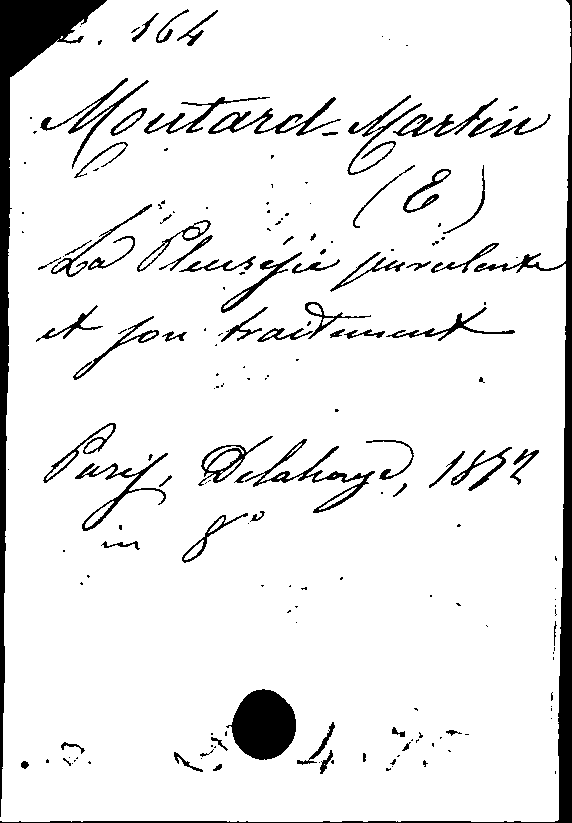 164
Moutard-Martin
(E)
La Pleurésie purulente
et son traitement
Paris, Delahaye, 1872
in 8°